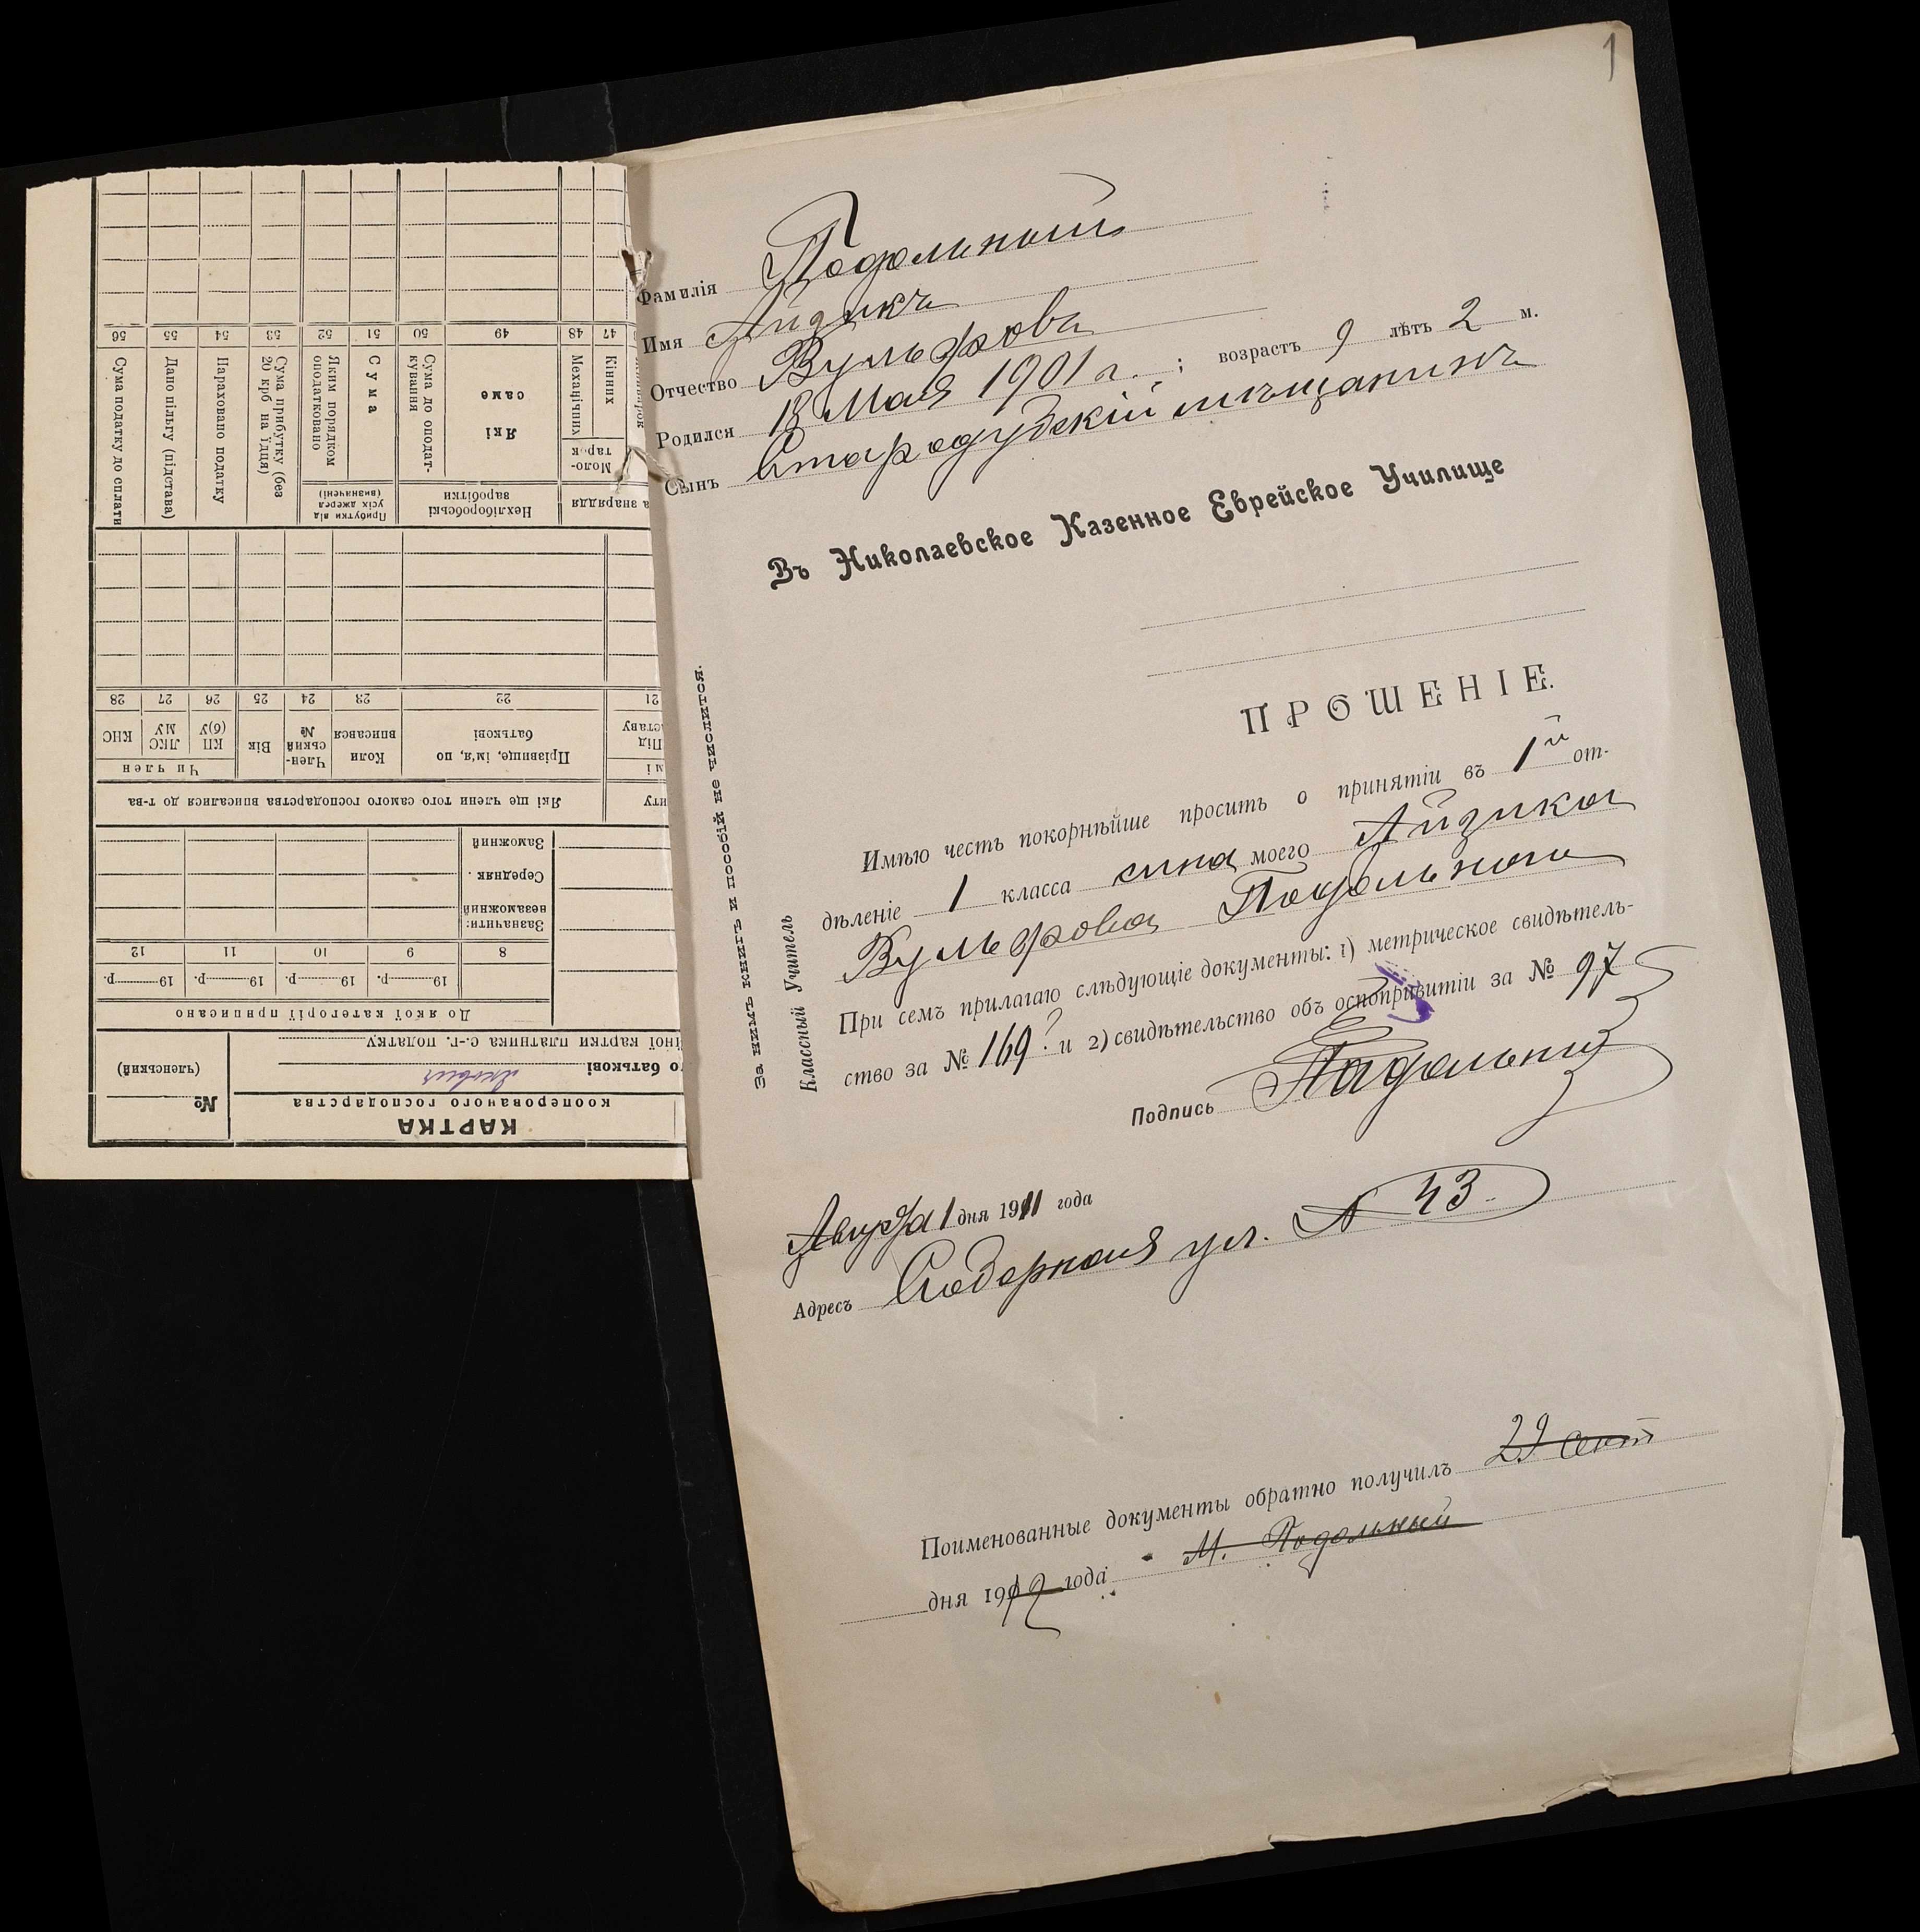 1
Фамилія Подольный
Имя Айзикъ
Отчество Вульфовъ
Родился 18 Мая 1901 г. ; возрастъ 9 лѣтъ 2 м.
Сынъ Стародубскій мѣщанинъ
Въ Николаевское Казенное Еврейское Училище
ПРОШЕНІЕ.
Имѣю честь покорнѣйше просить о принятіи въ 1й от-
дѣленіе 1 класса сына моего Айзика
Вульфова Подольного
При семъ прилагаю слѣдующіе документы: 1) метрическое свидѣтель-
ство за № 169? и 2) свидѣтельство объ оспопривитіи за № 97
Подпись Подольный
Августа 1 дня 1911 года
Адресъ Соборная ул. № 43
Поименованные документы обратно получилъ 29 сент
дня 1912 года М. Подольный
За нимъ книгъ и пособій не числится.
Классный Учитель
КАРТКА
кооперованого господарства
№
(членський)
о батькові
йної картки платника с.-г. податку
До якої категорії приписано
19 р. 19 р. 19 р. 19 р.
8 9 10 11 12
Зазначити:
незаможний
Середняк
Заможний
Які ще члени того самого господарства вписалися до т-ва
Прізвище, ім'я, по батькові
Коли вписався
Член-ський №
Вік
Чи член
КП (б)У
ЛКС МУ
КНС
21 22 23 24 25 26 27 28
а знаряддя
Нехліборобські заробітки
Прибутки від усіх джерел (визначені)
Моло-тарок
Кінних
Механічних
Які саме
Сума до оподат-кування
Сума
Яким порядком оподатковано
Сума прибутку (без 20 крб на їдця)
Нараховано податку
Дано пільгу (підстава)
Сума податку до сплати
47 48 49 50 51 52 53 54 55 56